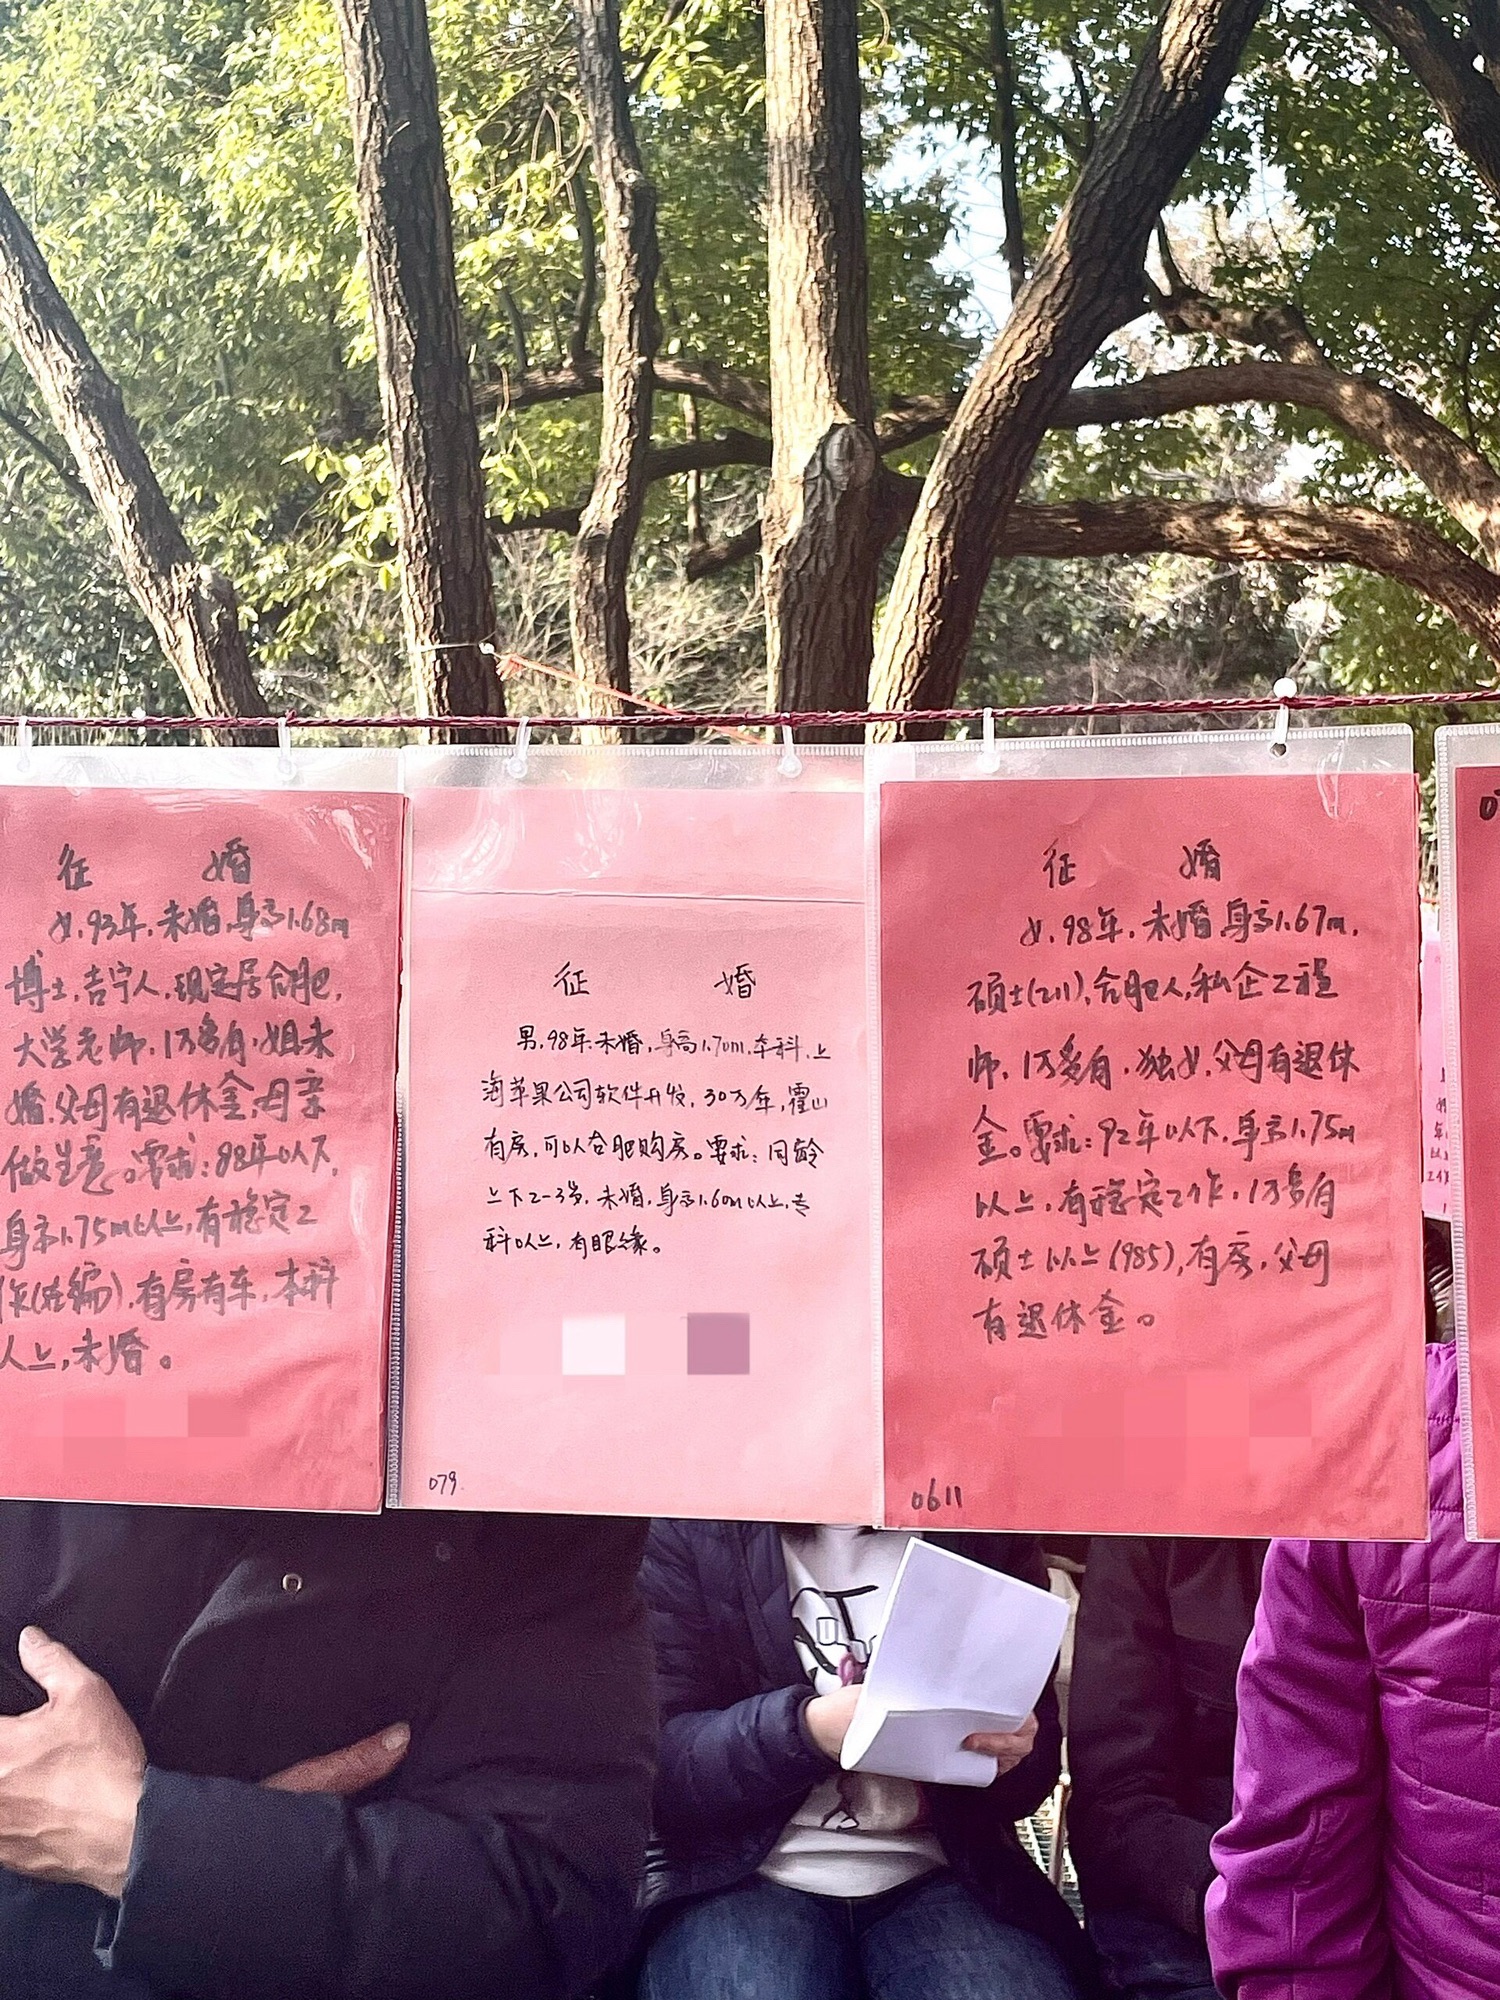 征 婚
女.93年.未婚.身高1.68m
博士.吉宁人.现定居合肥,
大学老师.1万多有.姐未
婚.父母有退休金,母亲
做生意。要求:88年以下,
身高1.75m以上,有稳定工
作(在编),有房有车.本科
以上,未婚。
征 婚
男.98年.未婚.身高1.70m.本科.上
海苹果公司软件开发,30万年,霍山
有房,可以合肥购房。要求:同龄
上下2-3岁,未婚.身高1.60m以上,专
科以上,有眼缘。
079.
征 婚
女.98年.未婚.身高1.67m.
硕士(211),合肥人,私企工程
师.1万多有.独女,父母有退休
金。要求:92年以下.身高1.75m
以上,有稳定工作,1万多有
硕士以上(985),有房,父母
有退休金。
0611